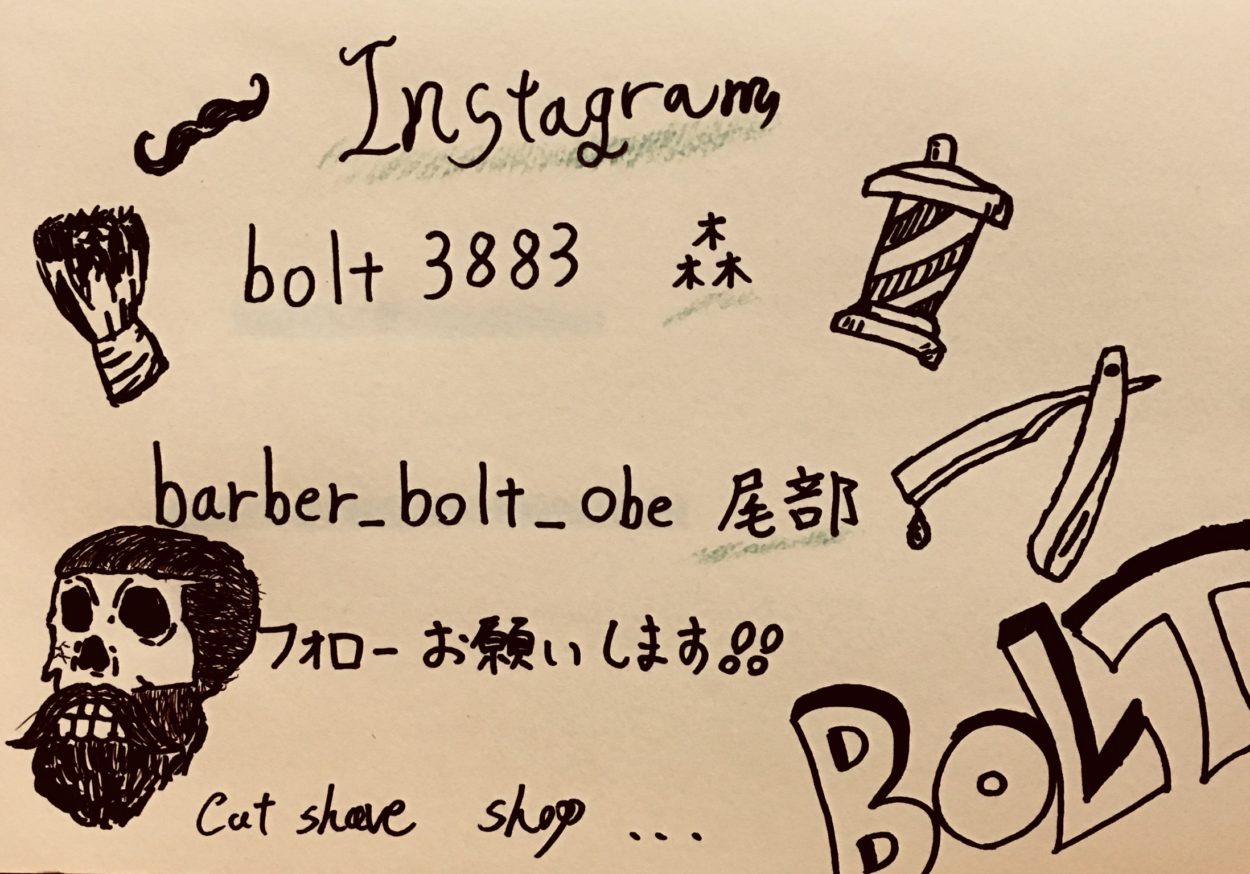 Instagram
bolt 3883 森
barber_bolt_obe 尾部
フォローお願いします!!
Cut shave shop ...
BOLT